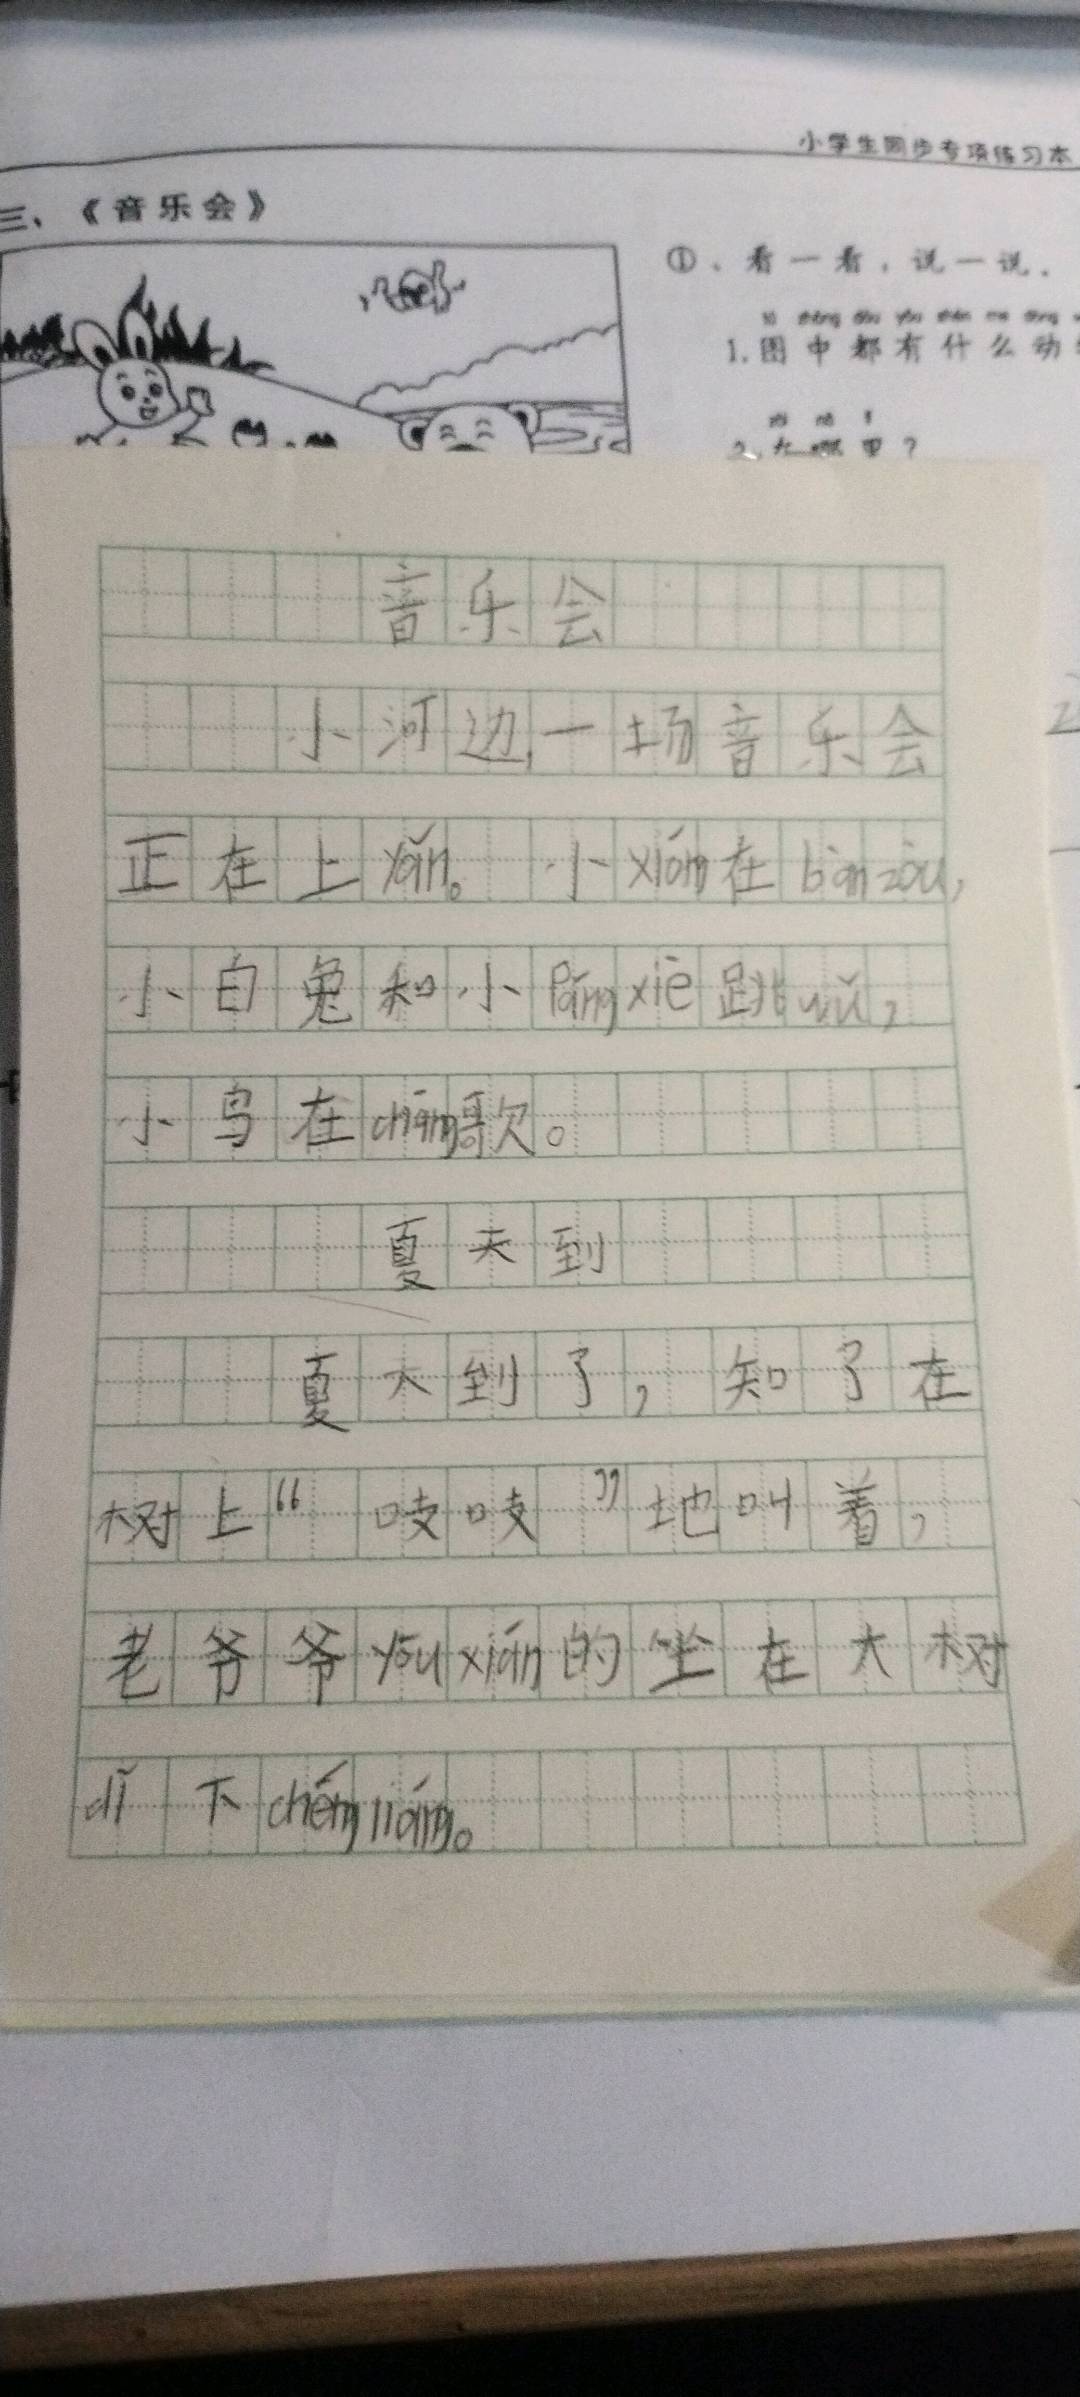 小学生同步专项练习本
三、《音乐会》
①、看一看，说一说。
1.图中都有什么动
2.在哪里？
音乐会
小河边,一场音乐会
正在上yǎn。小xióng在bànzòu,
小白兔和小pángxiè跳wǔ，
小鸟在chàng歌。
夏天到
夏天到了，知了在
树上“吱吱”地叫着，
老爷爷yōuxián的坐在大树
dǐ下chéngliáng。